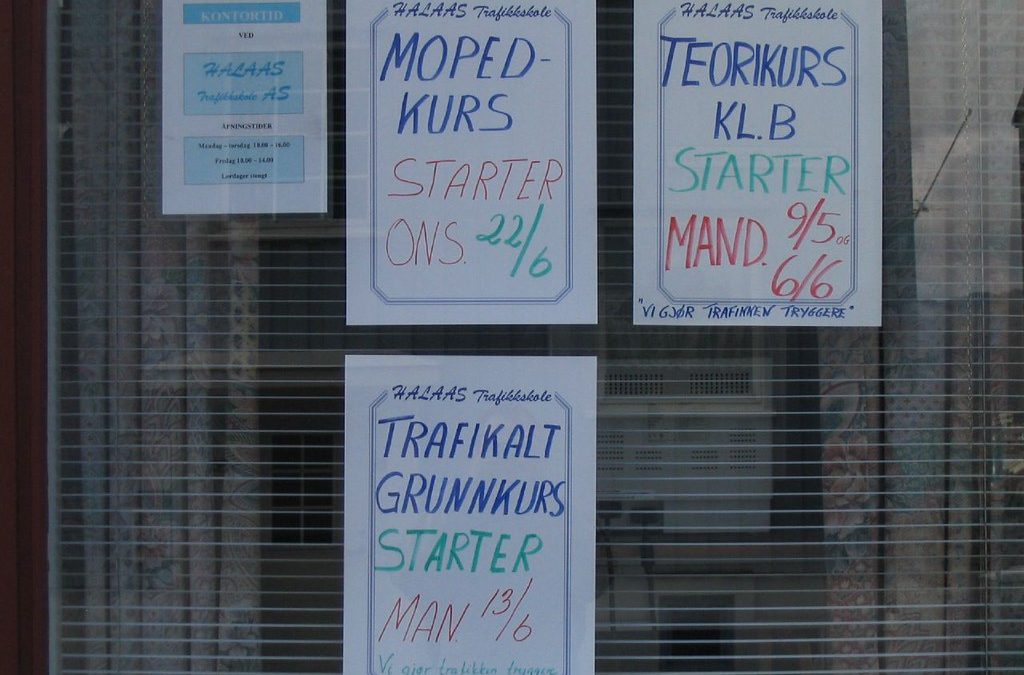 KONTORTID
VED
HALAAS
Trafikkskole AS
ÅPNINGSTIDER
Mandag – torsdag 10.00 – 16.00
Fredag 10.00 – 14.00
Lørdager stengt
HALAAS Trafikkskole
MOPED-
KURS
STARTER
ONS. 22/6
HALAAS Trafikkskole
TEORIKURS
KL.B
STARTER
MAND. 9/5 OG
6/6
"VI GJØR TRAFIKKEN TRYGGERE"
HALAAS Trafikkskole
TRAFIKALT
GRUNNKURS
STARTER
MAN. 13/6
Vi gjør trafikken tryggere